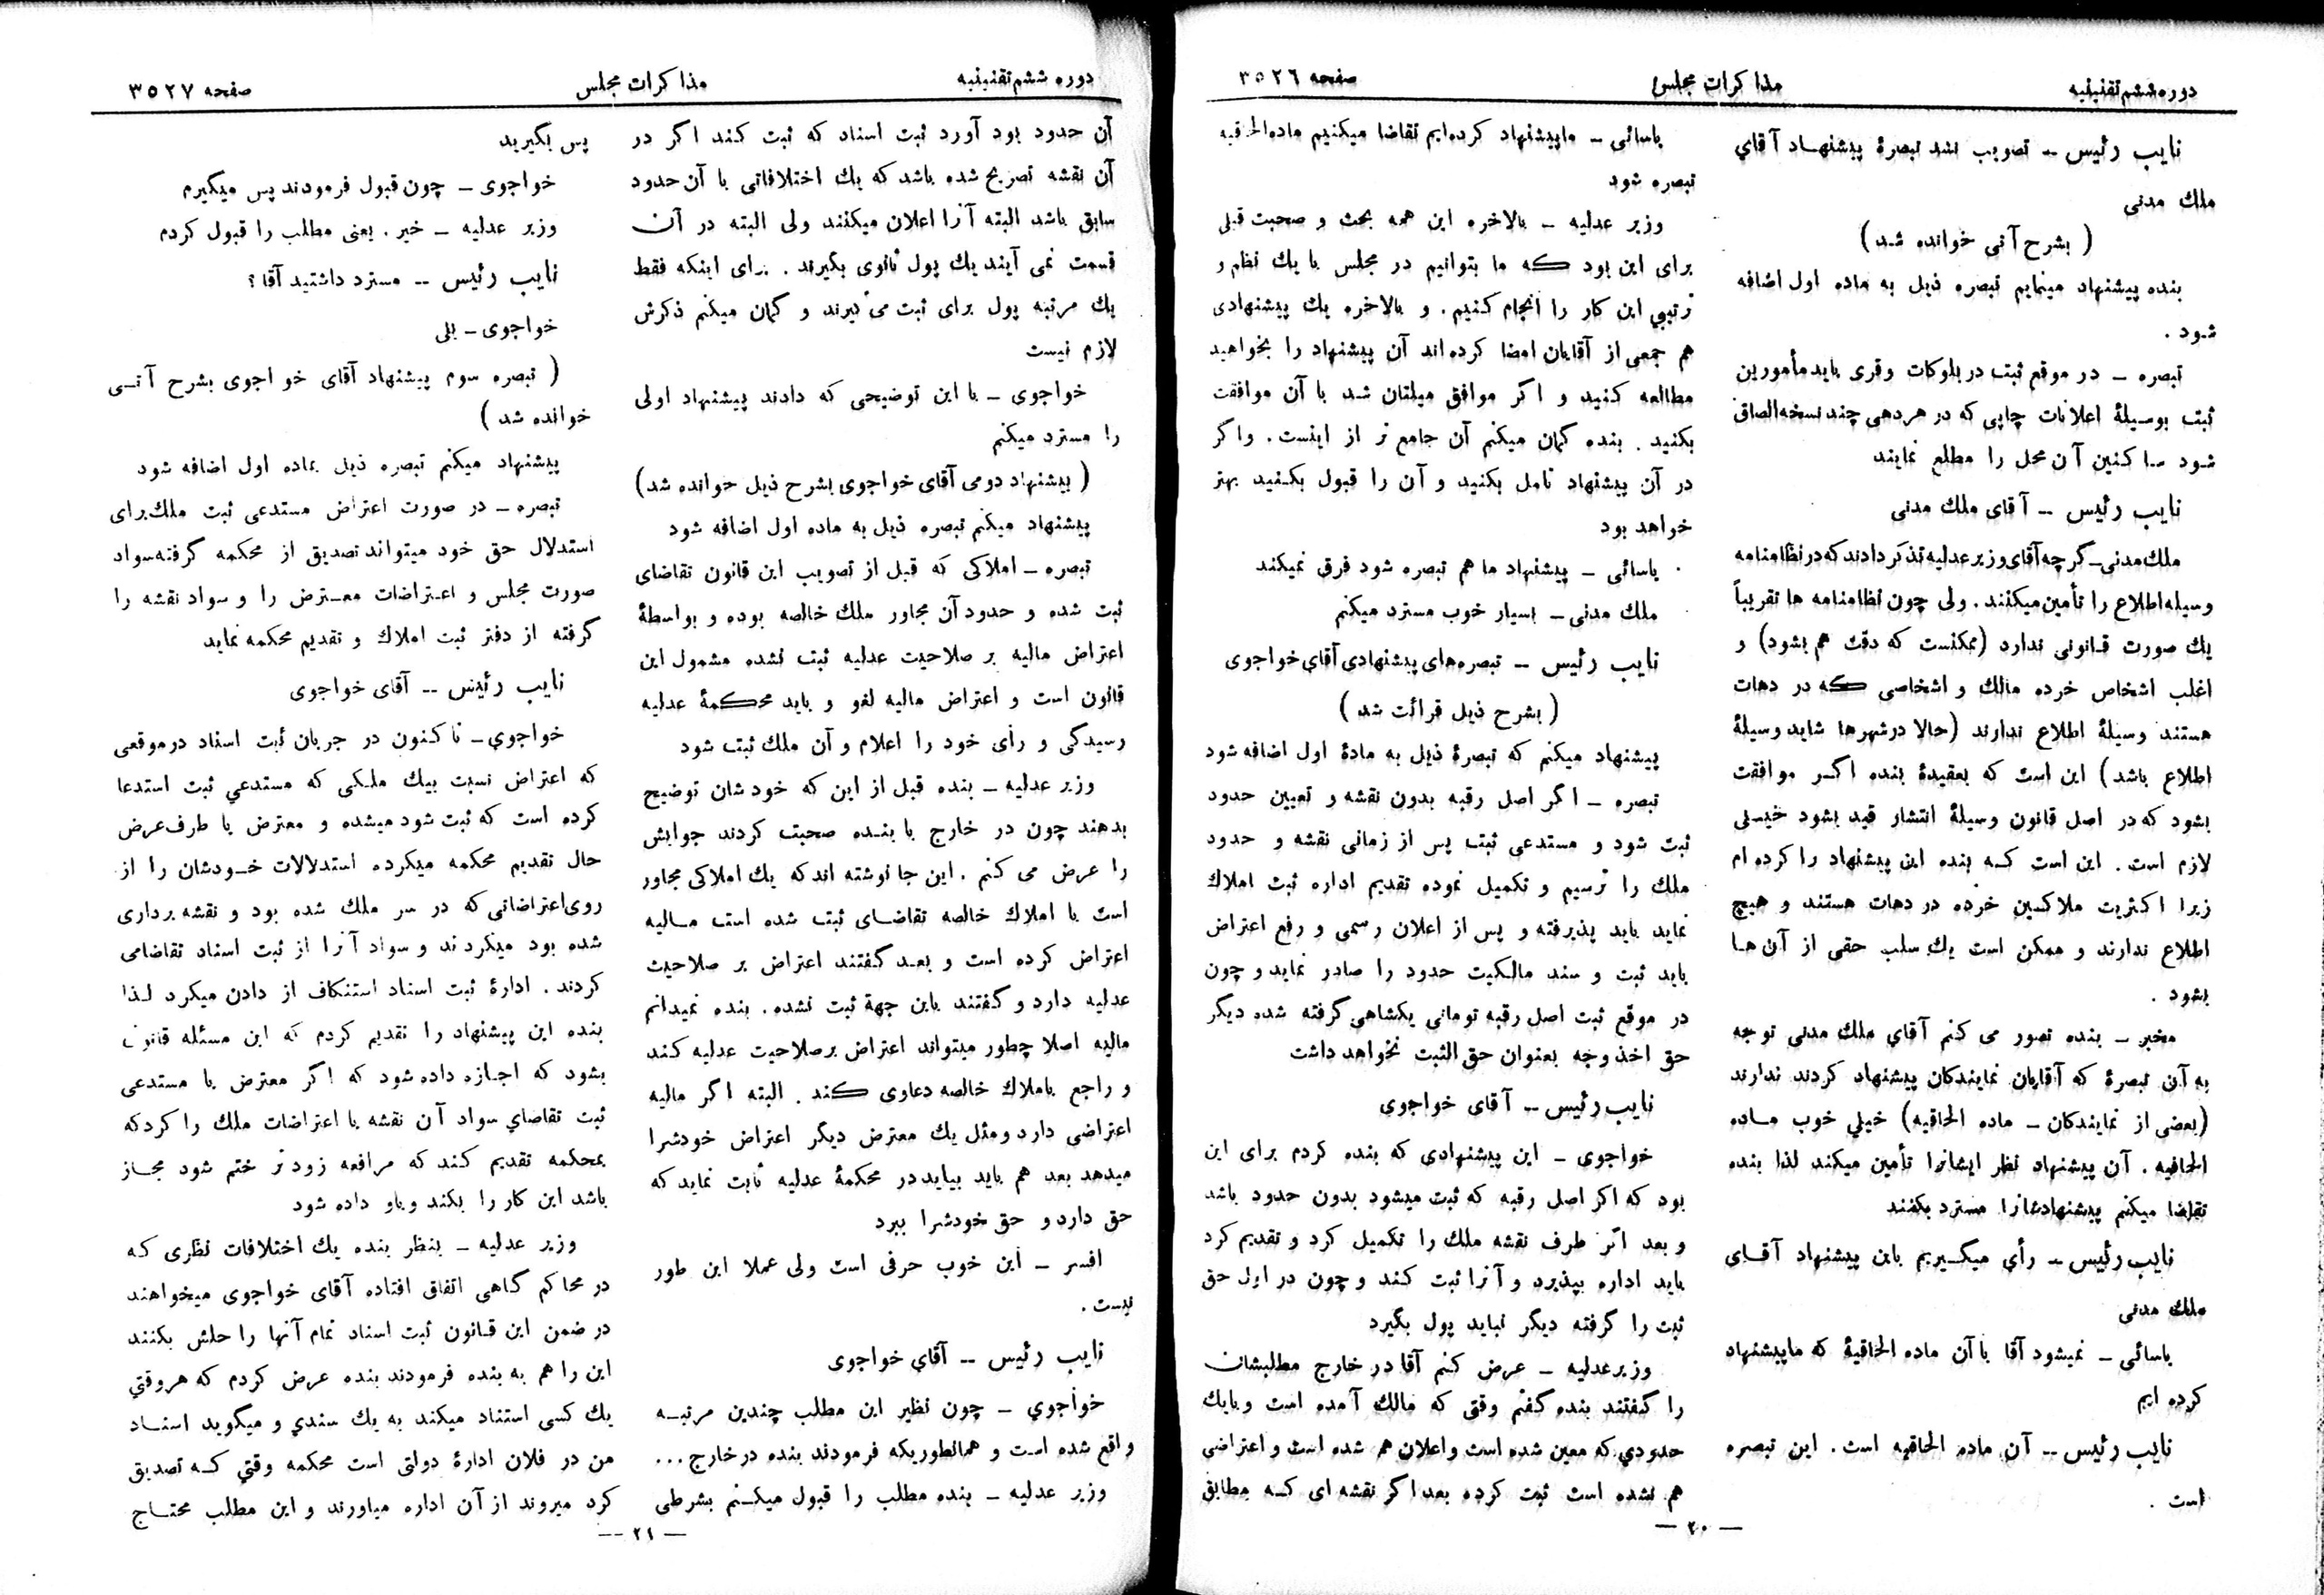 دوره ششم تقنینیه
مذاکرات مجلس
صفحه ۳۵۲۶
نایب رئیس -- تصویب نشد تبصرهٔ پیشنهاد آقای
ملك مدنی
( بشرح آتی خوانده شد )
بنده پیشنهاد مینمایم تبصره ذیل به ماده اول اضافه
شود .
تبصره - در موقع ثبت در بلوکات وقری باید مأمورین
ثبت بوسیلهٔ اعلانات چاپی که در هر دهی چند نسخه الصاق
شود ساکنین آن محل را مطلع نمایند
نایب رئیس -- آقای ملك مدنی
ملك مدنی - گرچه آقای وزیر عدلیه تذکر دادند که در نظامنامه
وسیله اطلاع را تأمین میکنند . ولی چون نظامنامه ها تقریباً
یك صورت قانونی ندارد (ممکنست که دقت هم بشود) و
اغلب اشخاص خرده مالك و اشخاصی که در دهات
هستند وسیلهٔ اطلاع ندارند (حالا در شهرها شاید وسیلهٔ
اطلاع باشد) این است که بعقیدهٔ بنده اگر موافقت
بشود که در اصل قانون وسیلهٔ انتشار قید بشود خیلی
لازم است . این است که بنده این پیشنهاد را کرده ام
زیرا اکثریت ملاکین خرده در دهات هستند و هیچ
اطلاع ندارند و ممکن است یك سلب حقی از آن ها
بشود .
مخبر - بنده تصور می کنم آقای ملك مدنی توجه
به آن تبصرهٔ که آقایان نمایندکان پیشنهاد کردند ندارند
(بعضی از نمایندکان - ماده الحاقیه) خیلی خوب ماده
الحاقیه . آن پیشنهاد نظر ایشانرا تأمین میکند لذا بنده
تقاضا میکنم پیشنهادشانرا مسترد بکنند
نایب رئیس -- رأی میگیریم باین پیشنهاد آقای
ملك مدنی
یاسائی - نمیشود آقا با آن ماده الحاقیهٔ که ما پیشنهاد
کرده ایم
نایب رئیس -- آن ماده الحاقیه است . این تبصره
است .
یاسائی - ما پیشنهاد کرده ایم تقاضا میکنیم ماده الحاقیه
تبصره شود
وزیر عدلیه - بالاخره این همه بحث و صحبت قبلی
برای این بود که ما بتوانیم در مجلس با یك نظم و
ترتیبی این کار را انجام کنیم . و بالاخره یك پیشنهادی
هم جمعی از آقایان امضا کرده اند آن پیشنهاد را بخواهید
مطالعه کنید و اگر موافق میلتان شد با آن موافقت
بکنید . بنده گمان میکنم آن جامع تر از اینست . واگر
در آن پیشنهاد تامل بکنید و آن را قبول بکنید بهتر
خواهد بود
یاسائی - پیشنهاد ما هم تبصره شود فرق نمیکند
ملك مدنی - بسیار خوب مسترد میکنم
نایب رئیس -- تبصره های پیشنهادی آقای خواجوی
( بشرح ذیل قرائت شد )
پیشنهاد میکنم که تبصرهٔ ذیل به مادهٔ اول اضافه شود
تبصره - اگر اصل رقبه بدون نقشه و تعیین حدود
ثبت شود و مستدعی ثبت پس از زمانی نقشه و حدود
ملك را ترسیم و تکمیل نموده تقدیم اداره ثبت املاك
نماید باید پذیرفته و پس از اعلان رسمی و رفع اعتراض
باید ثبت و سند مالکیت حدود را صادر نماید و چون
در موقع ثبت اصل رقبه تومانی یکشاهی گرفته شده دیگر
حق اخذ وجه بعنوان حق الثبت نخواهد داشت
نایب رئیس -- آقای خواجوی
خواجوی - این پیشنهادی که بنده کردم برای این
بود که اکر اصل رقبه که ثبت میشود بدون حدود باشد
و بعد اگر طرف نقشه ملك را تکمیل کرد و تقدیم کرد
باید اداره بپذیرد و آنرا ثبت کند و چون در اول حق
ثبت را گرفته دیگر نباید پول بگیرد
وزیر عدلیه - عرض کنم آقا در خارج مطلبشان
را گفتند بنده گفتم وقتی که مالك آمده است و بایك
حدودی که معین شده است و اعلان هم شده است و اعتراضی
هم نشده است ثبت کرده بعد اگر نقشه ای که مطابق
— ۲۰ —
دوره ششم تقنینیه
مذاکرات مجلس
صفحه ۳۵۲۷
آن حدود بود آورد ثبت اسناد که ثبت کند اگر در
آن نقشه تصریح شده باشد که یك اختلافاتی با آن حدود
سابق باشد البته آنرا اعلان میکنند ولی البته در آن
قسمت نمی آیند یك پول ثانوی بگیرند . برای اینکه فقط
یك مرتبه پول برای ثبت می گیرند و گمان میکنم ذکرش
لازم نیست
خواجوی - با این توضیحی که دادند پیشنهاد اولی
را مسترد میکنم
( پیشنهاد دومی آقای خواجوی بشرح ذیل خوانده شد )
پیشنهاد میکنم تبصره ذیل به ماده اول اضافه شود
تبصره - املاکی که قبل از تصویب این قانون تقاضای
ثبت شده و حدود آن مجاور ملك خالصه بوده و بواسطهٔ
اعتراض مالیه بر صلاحیت عدلیه ثبت نشده مشمول این
قانون است و اعتراض مالیه لغو و باید محکمهٔ عدلیه
رسیدگی و رأی خود را اعلام و آن ملك ثبت شود
وزیر عدلیه - بنده قبل از این که خودشان توضیح
بدهند چون در خارج با بنده صحبت کردند جوابش
را عرض می کنم . این جا نوشته اند که یك املاکی مجاور
است با املاك خالصه تقاضای ثبت شده است مالیه
اعتراض کرده است و بعد گفتند اعتراض بر صلاحیت
عدلیه دارد و گفتند باین جهة ثبت نشده . بنده نمیدانم
مالیه اصلا چطور میتواند اعتراض بر صلاحیت عدلیه کند
و راجع باملاك خالصه دعاوی کند . البته اگر مالیه
اعتراضی دارد و مثل یك معترض دیگر اعتراض خودشرا
میدهد بعد هم باید بیاید در محکمهٔ عدلیه ثابت نماید که
حق دارد و حق خودشرا ببرد
افسر - این خوب حرفی است ولی عملا این طور
نیست .
نایب رئیس -- آقای خواجوی
خواجوی - چون نظیر این مطلب چندین مرتبه
واقع شده است و همانطوریکه فرمودند بنده در خارج ...
وزیر عدلیه - بنده مطلب را قبول میکنم بشرطی
پس بگیرید
خواجوی - چون قبول فرمودند پس میگیرم
وزیر عدلیه - خیر . یعنی مطلب را قبول کردم
نایب رئیس -- مسترد داشتید آقا ؟
خواجوی - بلی
( تبصره سوم پیشنهاد آقای خواجوی بشرح آتی
خوانده شد )
پیشنهاد میکنم تبصره ذیل بماده اول اضافه شود
تبصره - در صورت اعتراض مستدعی ثبت ملك برای
استدلال حق خود میتواند تصدیق از محکمه گرفته سواد
صورت مجلس و اعتراضات معترض را و سواد نقشه را
گرفته از دفتر ثبت املاك و تقدیم محکمه نماید
نایب رئیس -- آقای خواجوی
خواجوی - تاکنون در جریان ثبت اسناد در موقعی
که اعتراض نسبت بیك ملکی که مستدعی ثبت استدعا
کرده است که ثبت شود میشده و معترض یا طرف عرض
حال تقدیم محکمه میکرده استدلالات خودشان را از
روی اعتراضاتی که در سر ملك شده بود و نقشه برداری
شده بود میکردند و سواد آنرا از ثبت اسناد تقاضا می
کردند . ادارهٔ ثبت اسناد استنکاف از دادن میکرد لذا
بنده این پیشنهاد را تقدیم کردم که این مسئله قانون
بشود که اجازه داده شود که اگر معترض یا مستدعی
ثبت تقاضای سواد آن نقشه یا اعتراضات ملك را کرد که
بمحکمه تقدیم کند که مرافعه زودتر ختم شود مجاز
باشد این کار را بکند و باو داده شود
وزیر عدلیه - بنظر بنده یك اختلافات نظری که
در محاکم گاهی اتفاق افتاده آقای خواجوی میخواهند
در ضمن این قانون ثبت اسناد تمام آنها را حلش بکنند
این را هم به بنده فرمودند بنده عرض کردم که هروقتی
یك کسی استناد میکند به یك سندی و میگوید اسناد
من در فلان ادارهٔ دولتی است محکمه وقتی که تصدیق
کرد میروند از آن اداره میاورند و این مطلب محتاج
— ۲۱ —